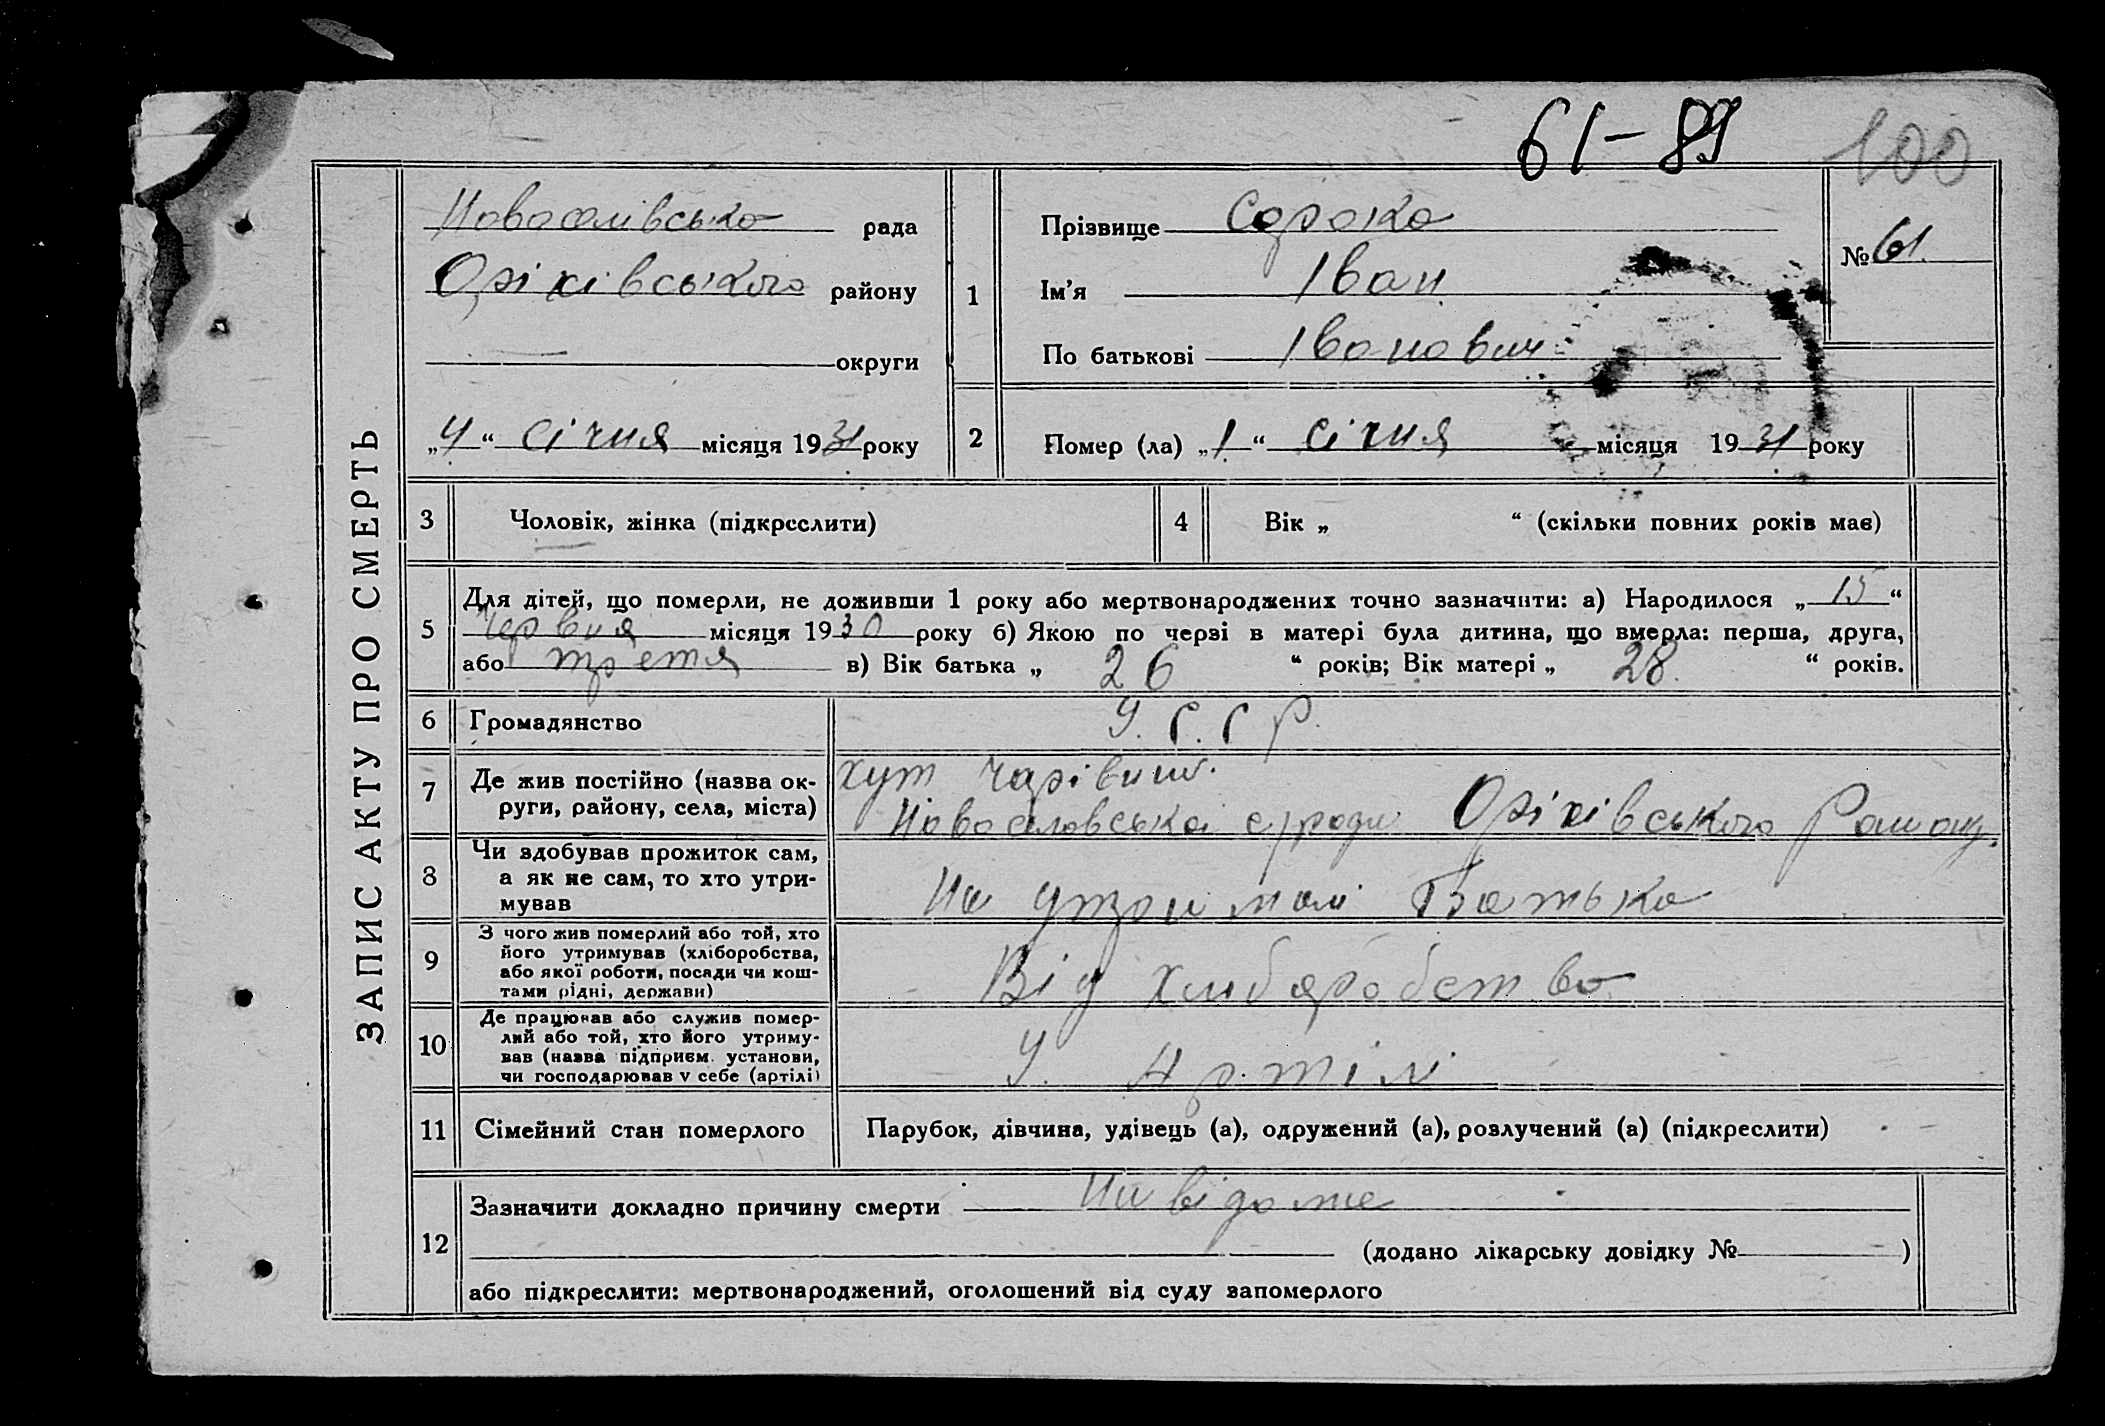 61-89 100
ЗАПИС АКТУ ПРО СМЕРТЬ
Новоселівсько рада
Оріхівського району
округи
„4“ січня місяця 1931 року
1
Прізвище Сороко
Ім’я Іван
По батькові Іванович
№ 61.
2
Помер (ла) „1“ січня місяця 1931 року
3 Чоловік, жінка (підкреслити)
4 Вік „ “ (скільки повних років має)
5
Для дітей, що померли, не доживши 1 року або мертвонароджених точно зазначити: а) Народилося „15“
червня місяця 1930 року б) Якою по черзі в матері була дитина, що вмерла: перша, друга,
або третя в) Вік батька „26“ років; Вік матері „28.“ років.
6 Громадянство У.С.С.Р.
7 Де жив постійно (назва ок-
руги, району, села, міста)
хут
Новоселовської с/ради Оріхівського
8 Чи здобував прожиток сам,
а як не сам, то хто утри-
мував
На утримані Батька
9 З чого жив померлий або той, хто
його утримував (хліборобства,
або якої роботи, посади чи кош-
тами рідні, держави)
Від хліборобство
10 Де працював або служив помер-
лий або той, хто його утриму-
вав (назва підприєм. установи,
чи господарював у себе (артілі)
У. Артілі
11 Сімейний стан померлого Парубок, дівчина, удівець (а), одружений (а), розлучений (а) (підкреслити)
12
Зазначити докладно причину смерти Не відоме
(додано лікарську довідку № )
або підкреслити: мертвонароджений, оголошений від суду запомерлого